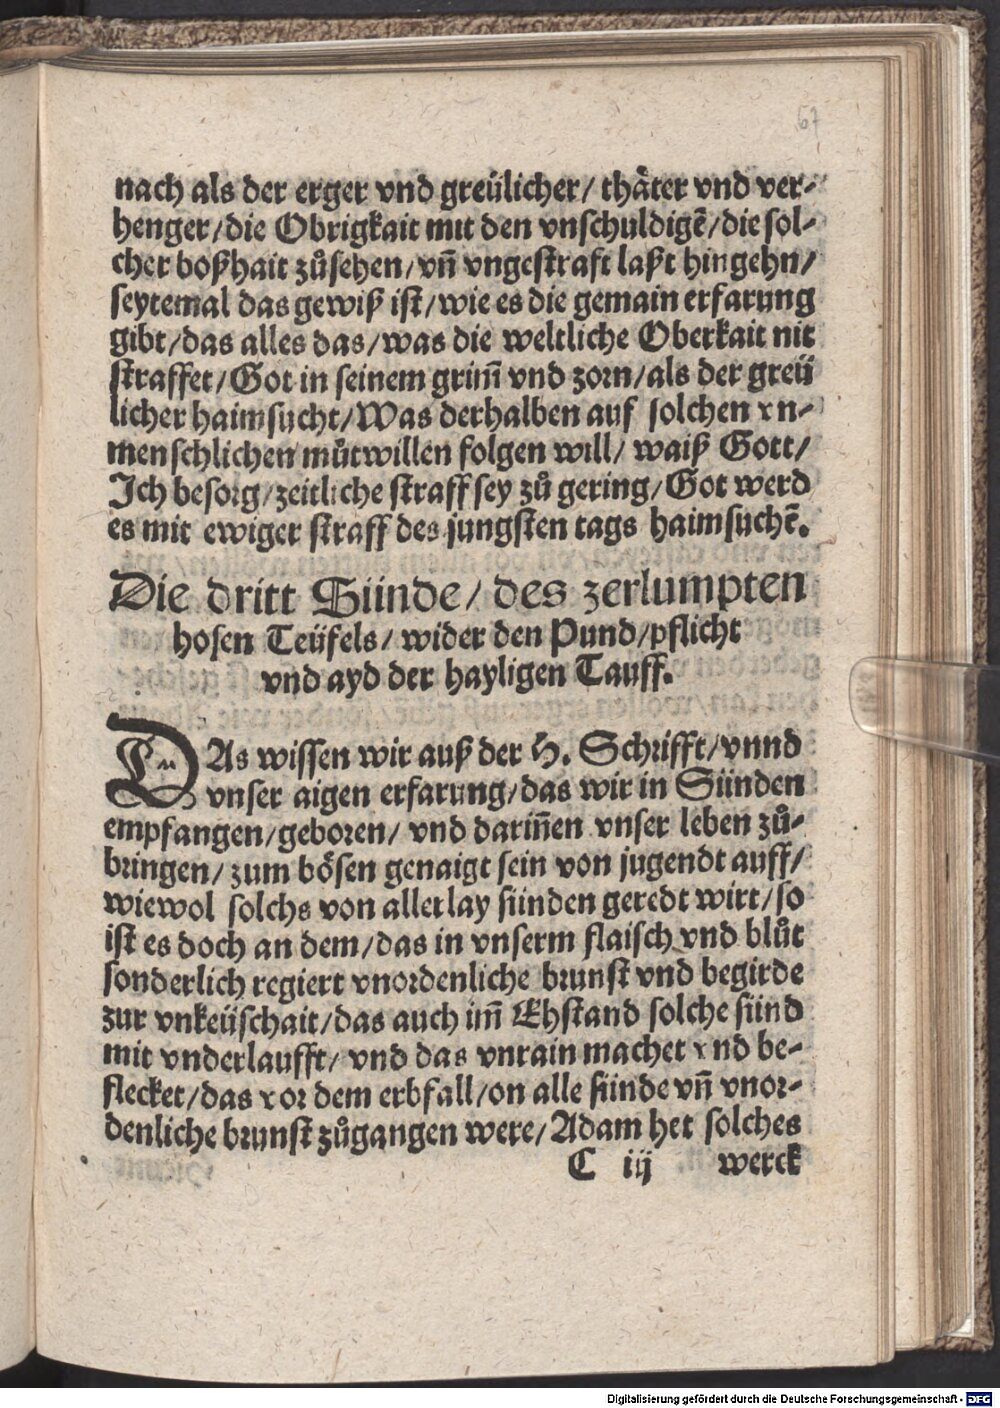 67
nach als der erger vnd greülicher/ thåter vnd ver-
henger/die Obrigkait mit den vnschuldigẽ/die sol-
cher boßhait zůsehen/vñ vngestraft laßt hingehn/
seytemal das gewiß ist/wie es die gemain erfarung
gibt/das alles das/was die weltliche Oberkait nit
straffet/Got in seinem grim̃ vnd zorn/als der greü
licher haimsucht/Was derhalben auf solchen vn-
menschlichen můtwillen folgen will/ waiß Gott/
Ich besorg/zeitliche straff sey zů gering/Got werd
es mit ewiger straff des jungsten tags haimsuchẽ.
Die dritt Sünde/ des zerlumpten
hosen Teüfels/ wider den Pund/pflicht
vnd ayd der hayligen Tauff.
DAs wissen wir auß der H. Schrifft/vnnd
vnser aigen erfarung/das wir in Sünden
empfangen/geboren/ vnd dariñen vnser leben zů-
bringen/ zum bösen genaigt sein von jugendt auff/
wiewol solchs von allerlay sünden geredt wirt/so
ist es doch an dem/das in vnserm flaisch vnd blůt
sonderlich regiert vnordenliche brunst vnd begirde
zur vnkeüschait/das auch im̃ Ehstand solche sünd
mit vnderlaufft/ vnd das vnrain machet vnd be-
flecket/das vor dem erbfall/on alle sünde vñ vnor-
denliche brunst zůgangen were/Adam het solches
C iij werck
Digitalisierung gefördert durch die Deutsche Forschungsgemeinschaft - DFG